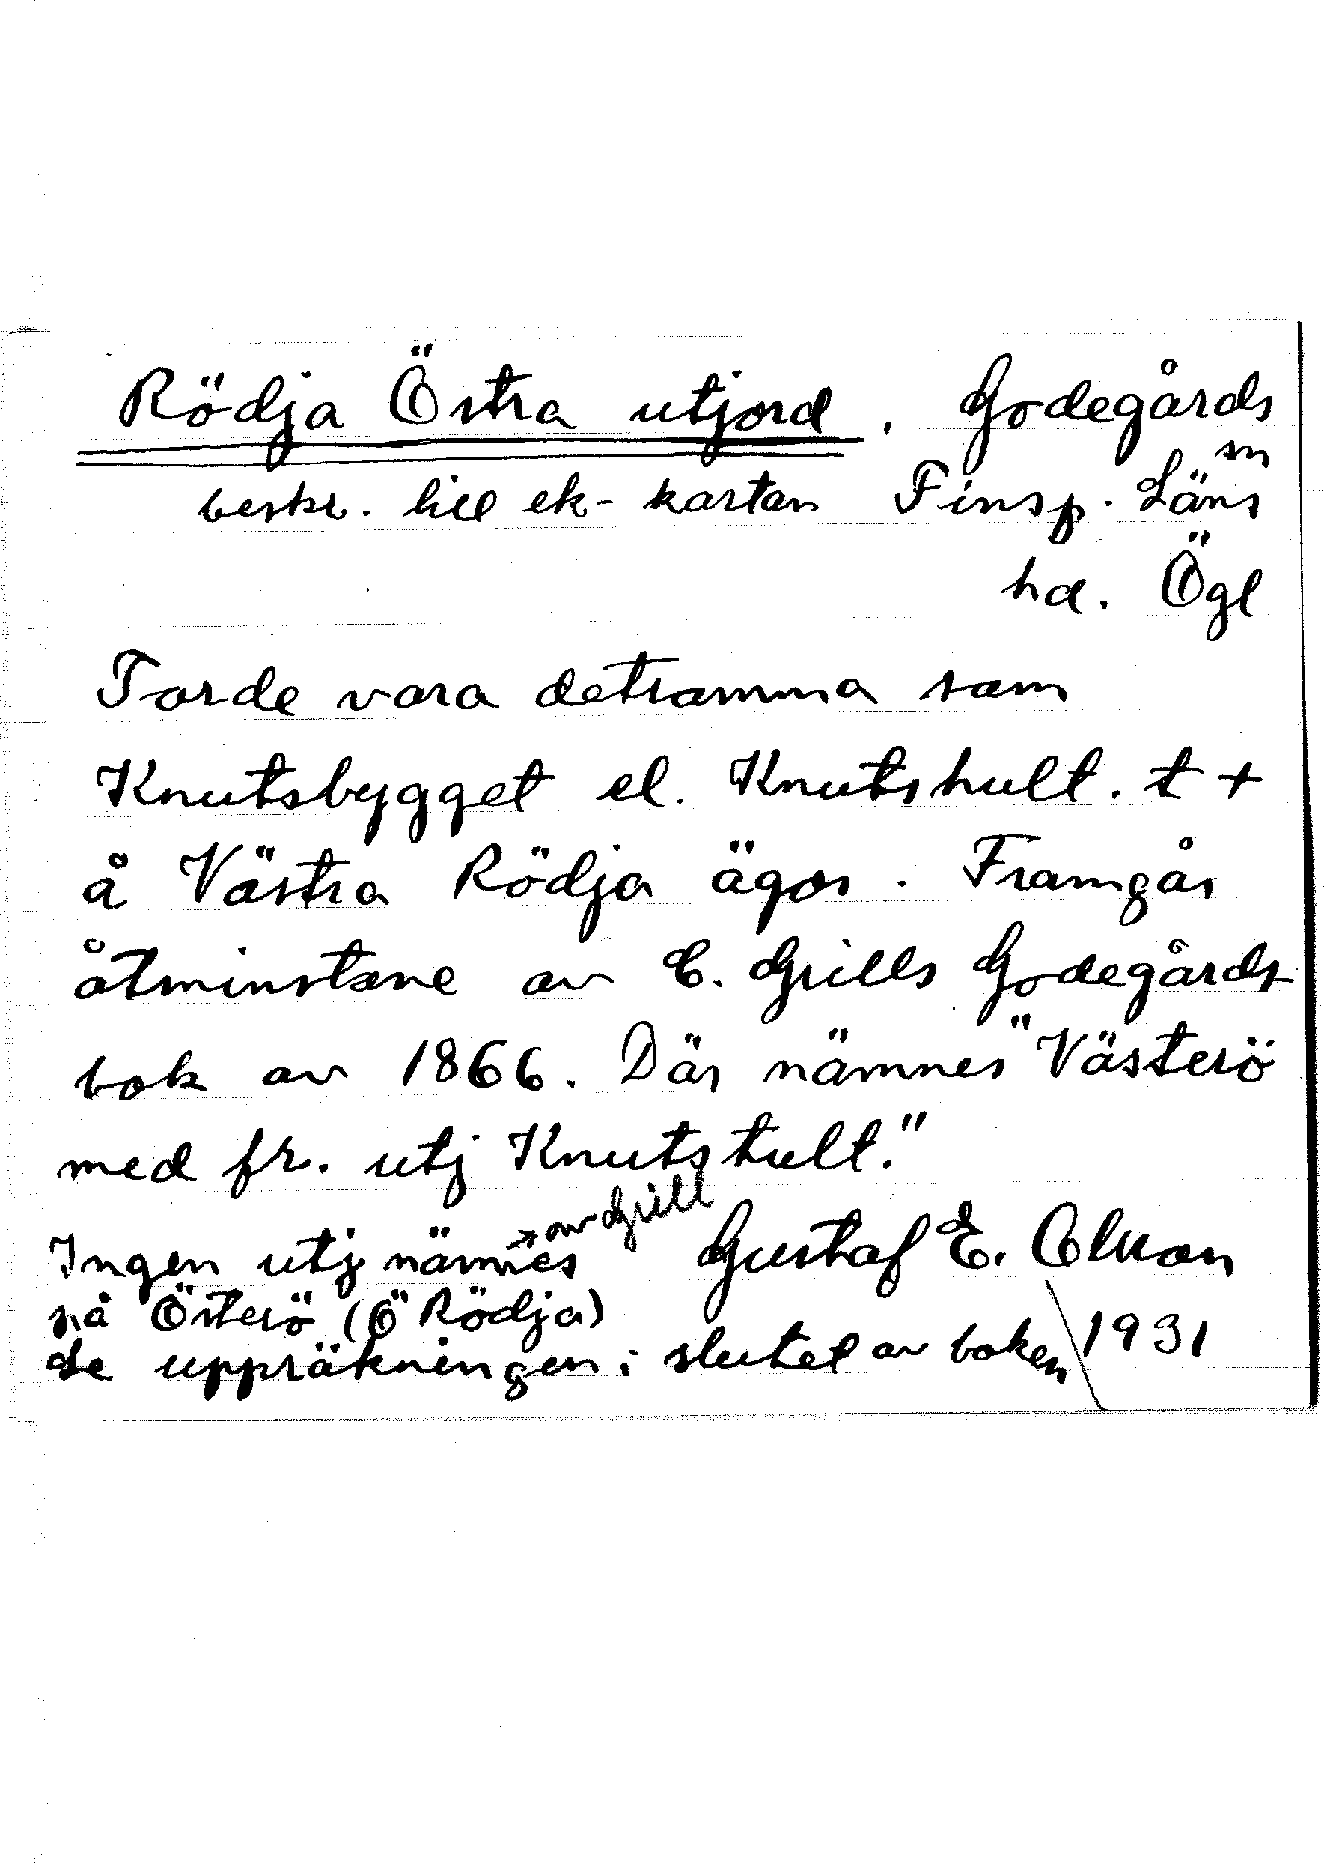 Rödja Östra utjord. Godegårds
sn
beskr. till ek-kartan Finsp. Läns
hd. Ögl
Torde vara detsamma som
Knutsbygget el. Knutshult. t +
å Västra Rödja ägor. Framgår
åtminstone av C. Grills Godegårds
bok av 1866. Där nämnes "Västerö
med fr. utj Knutshult."
av Grill
Ingen utj nämnes Gustaf E. Olsson
på Österö (Ö Rödja)
se uppräkningen i slutet av boken 1931